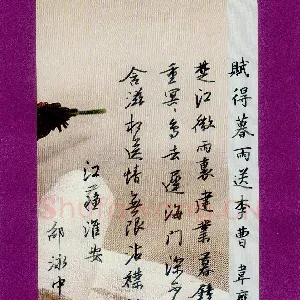 賦得暮雨送李曹 韋應
楚江微雨裏建業暮鐘
重冥々鳥去遲海門深不
含滋相送情無限沾襟
江蘇淮安
泳中